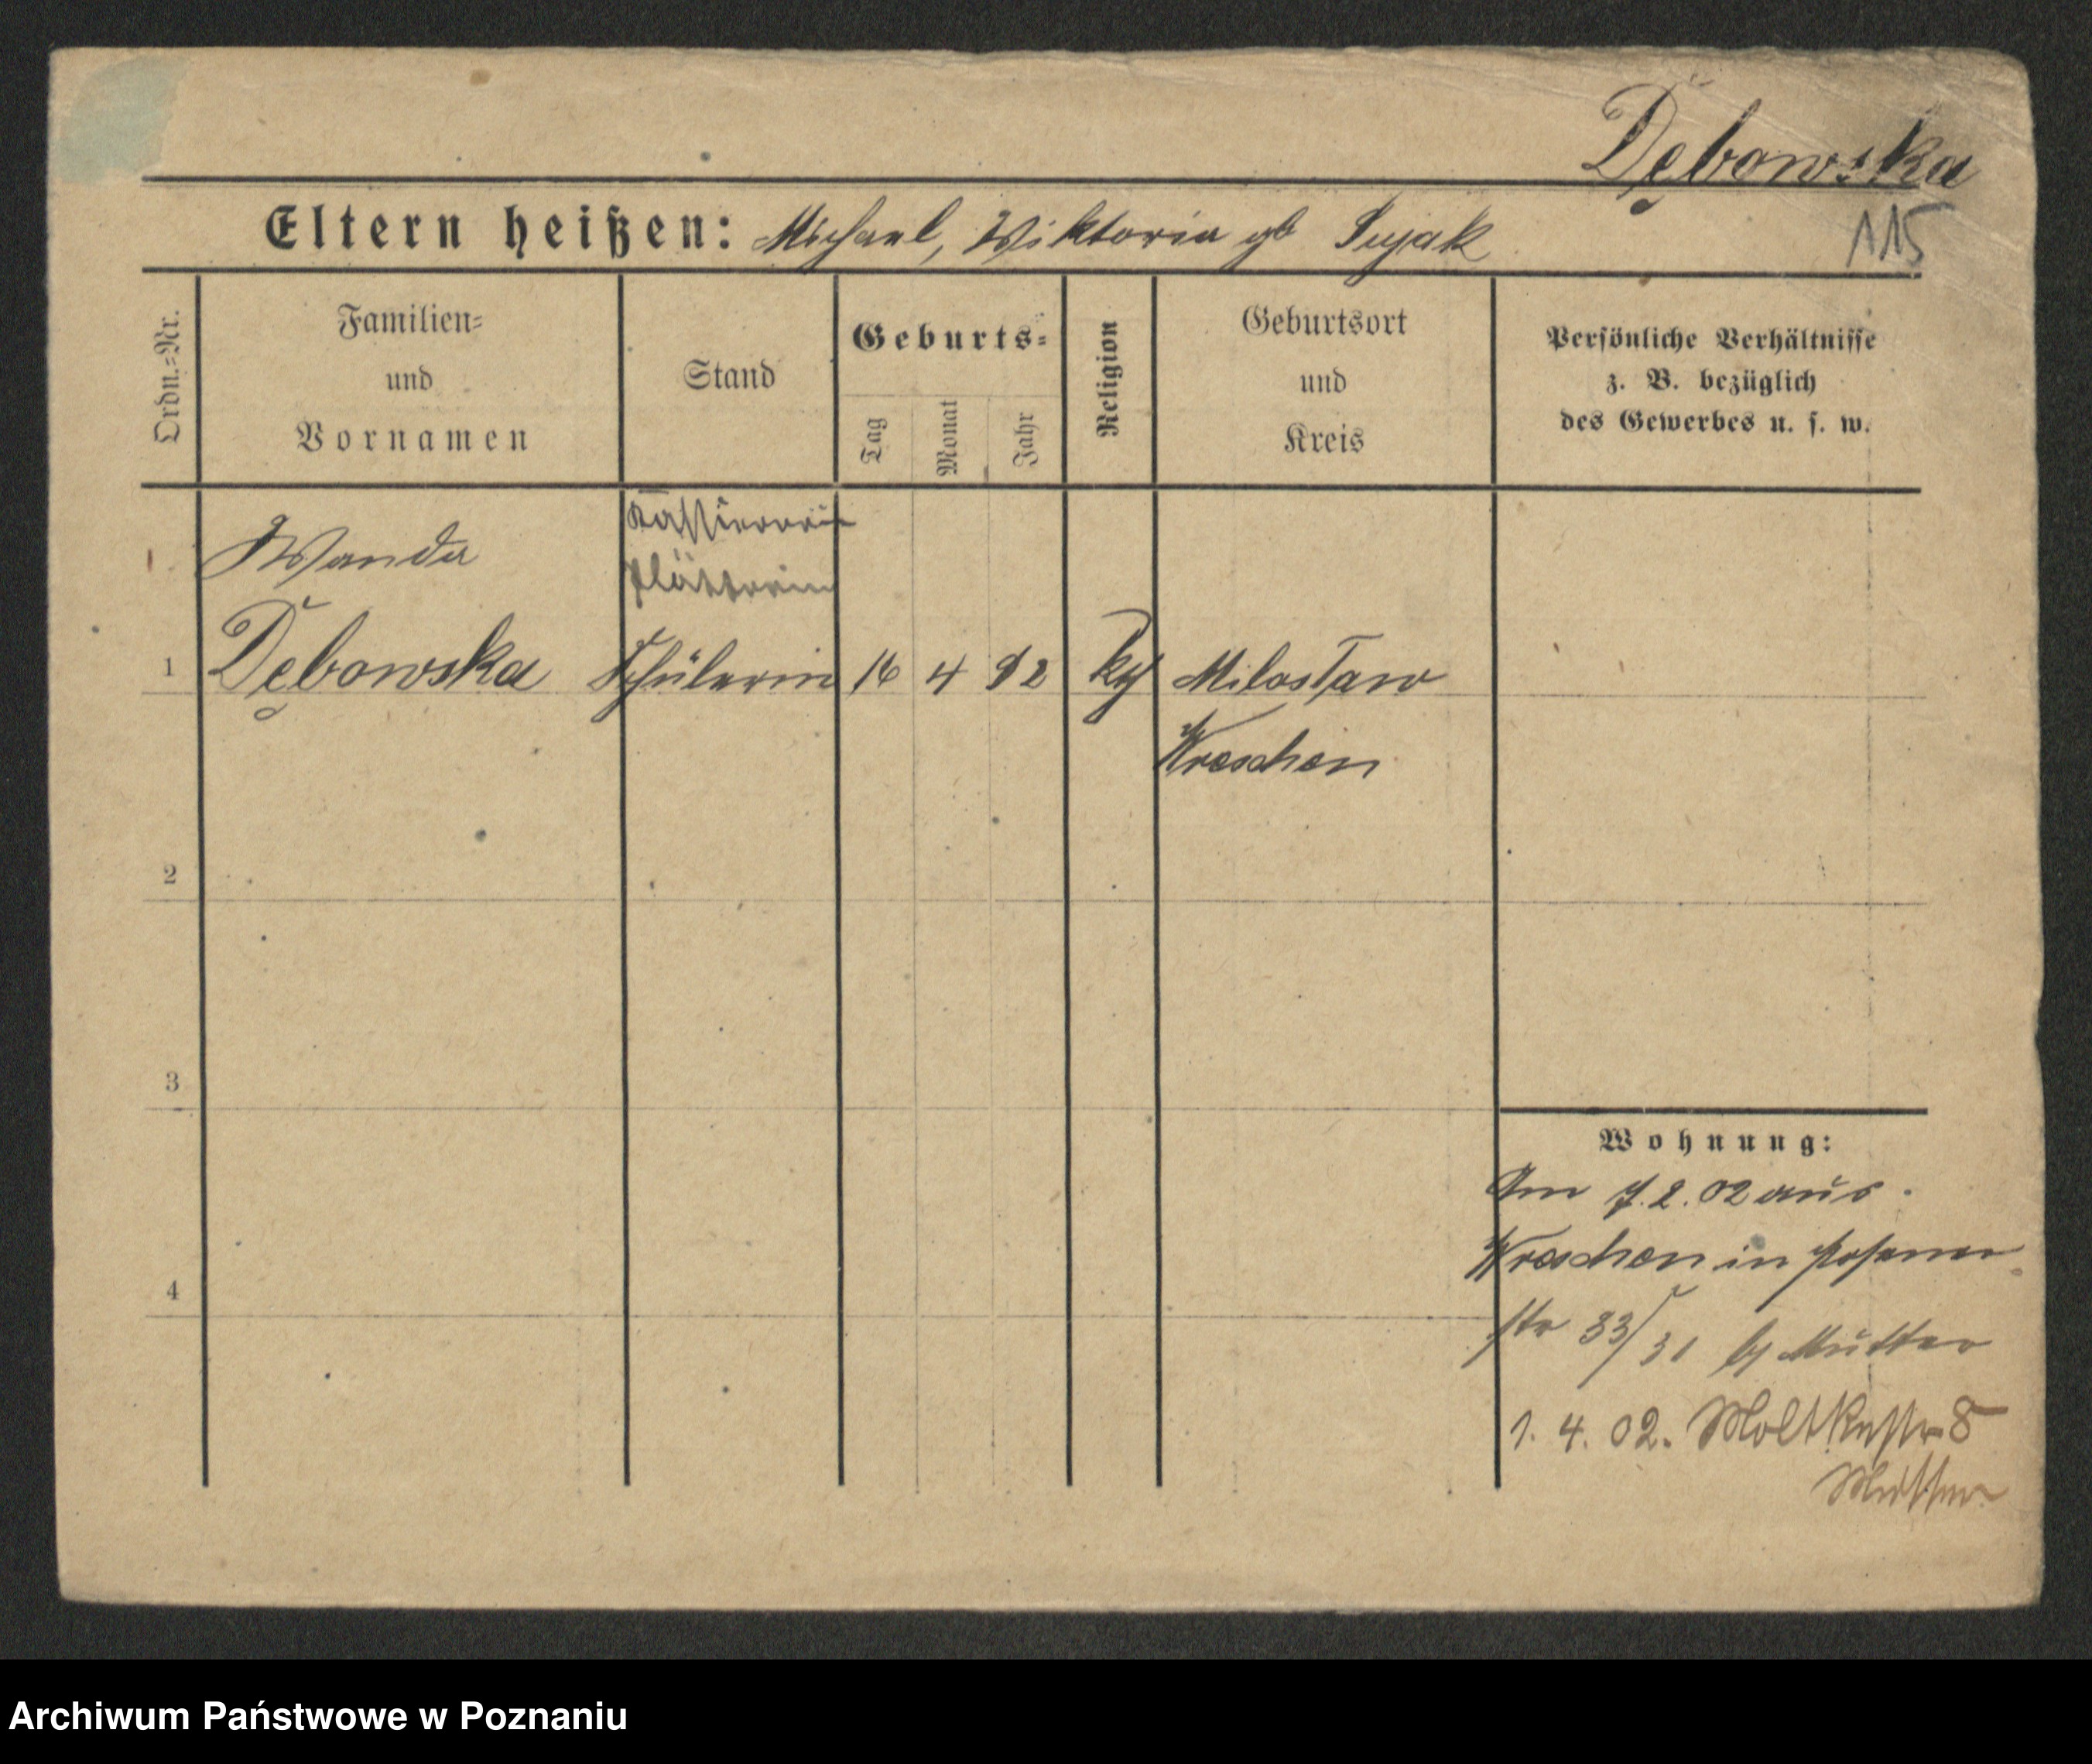 Dębowska
Eltern heißen: Michael, Wiktoria gb Sujak
115
Ordn.-Nr.
Familien-
und
Vornamen
Stand
Geburts-
Tag
Monat
Jahr
Religion
Geburtsort
und
Kreis
Persönliche Verhältnisse
z. B. bezüglich
des Gewerbes u. s. w.
Kassiererin
Wanda
Plätterin
1 Dębowska Schülerin 16 4 92 kg Miloslaw
Wreschen
2
3
4
Wohnung:
Am 7.2.02 aus
Wreschen in Posener
str 33/31 b/ Mutter
1. 4. 02. Moltkestr 8
Mutter
Archiwum Państwowe w Poznaniu